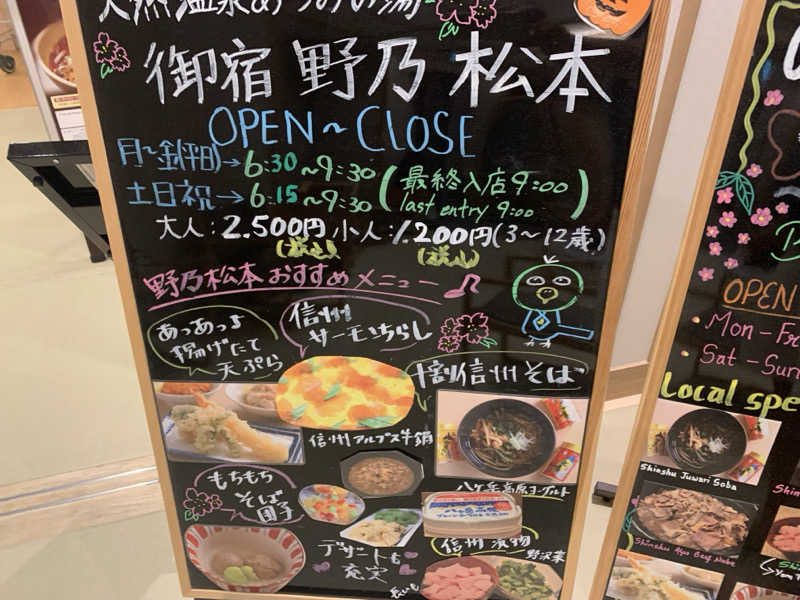 天然温泉あづみの湯
御宿 野乃 松本
OPEN~CLOSE
月~金(平日)→6:30~9:30
土日祝→6:15~9:30
(最終入店9:00
last entry 9:00)
大人:2.500円 小人:1.200円(3~12歳)
(税込) (税込)
野乃松本おすすめメニュー♪
あっあっよ
揚げたて
天ぷら
信州
サーモンちらし
十割信州そば
信州アルプス牛鍋
八ヶ岳高原ヨーグルト
もちもち
そば
団子
デザートも
充実
信州 漬物
野沢菜
長いも
OPEN
Mon-Fr
Sat-Sun
Local spe
Shinshu Juwari Soba
Shinshu Alps Beef Nabe